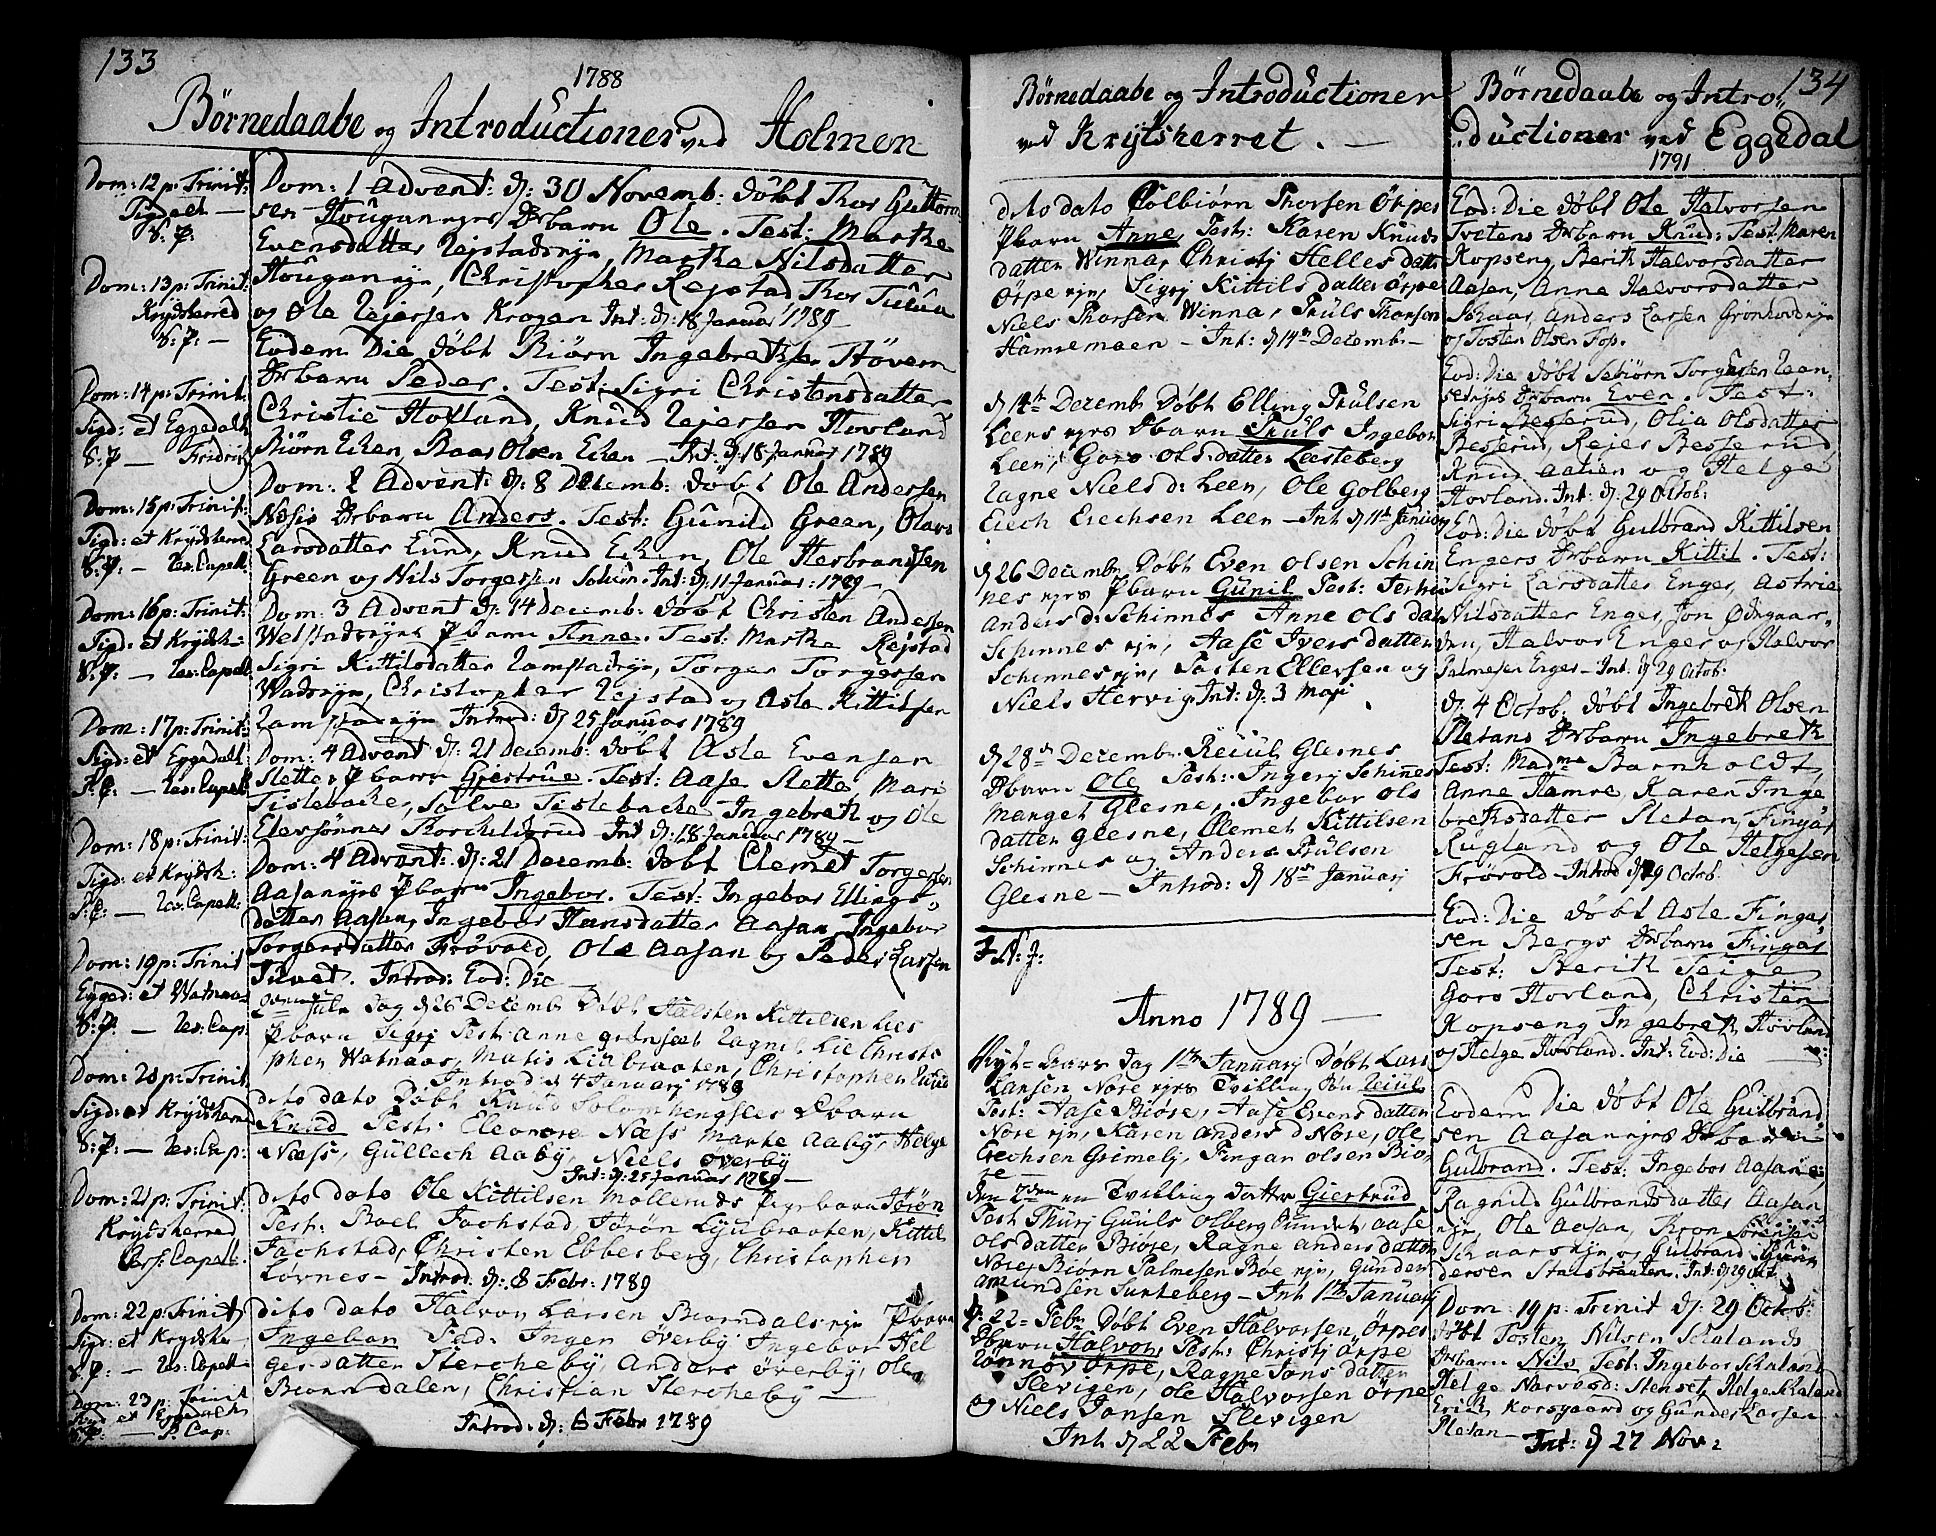 133
1788
Börnedaabe og Introductioner ved Holmen
Dom: 12 p: Trinit:
Sigdahl —
S: P:
Dom: 13 p: Trinit:
Krydsherred
S: P: —
Dom: 14 p: Trinit:
Sigd: et Eggedahl
S: P — Fridrich
Dom: 15 p: Trinit:
Sigd: et Krydsherred
S: P: — Res: Capell:
Dom: 16 p: Trinit:
Sigd: et Krydsh —
S: P: — Res: Capell
Dom: 17 p: Trinit:
Sigd: et Eggedahl
S: P: — Res: Capell
Dom: 18 p: Trinit:
Sigd: et Krydsh:
S: P: — Res: Capell:
Dom: 19 p: Trinit
Egged: et Watnaas
S: P: — Res: Cap:
Dom: 20 p: Trinit
Sigd: et Krydsherred
S: P: — Res: Cap:
Dom: 21 p: Trinit:
Krydsherred
Pers: Capell
Dom: 22 p: Trinit
Sigd: et Krydshe
S: P: — Res: Capell
Dom: 23 p: Trinit
et Eggedahl
— P: Cap:
Dom: 1 Advent: d: 30 Novemb: döbt Thor Guttorm
sen Hougan ejes Ørbarn Ole. Test: Marthe
Evensdatter Rejstadejn, Marthe Nilsdatter
Houganejn, Christopher Rejstad, Thor
og Ole Rejersen Krogen Int: d: 18 Januar 1789
Eodem Die döbt Biörn Ingebrethsen Hövern
Ørbarn Peder. Test: Sigri Christensdatter
Christie Hovland, Knud Rejersen Hovland
Biörn Eken, Roar Olsen Eken — Int: d: 18 Januar 1789
Dom: 2 Advent: d: 8 Decemb: döbt Ole Andersen
Ørbarn Anders. Test: Gunild Green,
Larsdatter Lund, Knud Eken, Ole Herbrandsen
Green og Nils Torgersen Solum. Int: d: 11 Januar: 1789 —
Dom: 3 Advent d: 14 Decemb: döbt Christen Andersen
Pbarn Anne. Test: Marthe Rejstad
Sigri Kittilsdatter Ramstadejn, Torger Torgersen
Wadsejn, Christopher Rejstad og Asle Kittilsen
Ramstadejn Introd: d: 25 Januar 1789
Dom: 4 Advent d: 21 Decemb: döbt Asle Evensen
Slettes Pbarn Giertrue. Test: Aase Slette, Mari
Tislebacke, Sølve Tislebacke Ingebreth og Ole
Int d: 18 Januar 1789 —
Dom: 4 Advent: d: 21 Decemb: döbt Clemet Torgersen
Aasanejes Pbarn Ingebor. Test: Ingebor Ellings
datter Aasan, Ingebor Hansdatter Aasan Ingebor
Torgersdatter Frövold, Ole Aasan og Peder Larsen
Tvet. Introd: Eod: Die
2den Jule dag d 26 Decemb Döbt Halsten Kittilsen Lies
Pbarn Sigrj Test: Anne grönset Ragnil Lie Christo
pher Watnaas, Matis Liebraaten, Christopher
Introd d 4 Januarj 1789
dito dato Döbt Pbarn
Knud Test: Eleonore Næss Marte Aaby, Helge
Næss, Gullech Aaby, Niels överby
Int: d: 25 Januar 1789 —
dito dato Ole Kittilsen Pigebarn Jörön
Test: Boel Fachstad, Jörön Lyubraaten, Kittil
Fachstad, Christen Ebbesberg, Christopher
Lövnes — Introd. d: 8 Febr: 1789
dito dato Halvor Larsen Biorndalsejn Pbarn
Ingebor Fad: Inger överby Ingebor Hel
gesdatter Stercheby, Anders överby, Ole
Biorndalen, Christian Stercheby —
Introd: d: 6 Febr 1789
Börnedaabe og Introductioner
ved Krytsherret. —
dito dato Colbiörn Thorsen Örpes
Pbarn Anne, Test: Karen Knuds
datter Winna, Christj Helles datt
Örpe ejn, Sigrj Kittils datter örpe
Niels Thorsen Winna, Truls Thorson
Hamremoen — Int: d 14de Decembr —
d 14de Decembr Döbt Elling Trulsen
Leens ejes Pbarn Truls Ingebor
Leen, Goro Ols datter Leesteberg
Ragne Niels d: Leen, Ole Golberg
Erich Erichsen Leen — Int d 11te Januar
d 26 Decembr Döbt Even Olsen Schin
nes ejes Pbarn Gunil Test:
Anders d: Schinnes Anne Ols dat
Schinnes ejn, Aase Ivers datter
Schinnes ejn, Tosten Ellevsen og
Niels Hervig Int: d: 3 Maji
d 28de Decembr Reiul Glesnes
Dbarn Ole Test: Ingerj Schinnes
Marget Glesne, Ingebor Ols
datter glesne, Clemet Kittilsen
Schinnes og Anders Trulsen
Glesne — Introd: d 18de Januarj
I: N: J:
Anno 1789 —
Nyt-aars dag 1ste Januarj Döbt Lars
Larsen Nore ejes Tvilling Bn Reiul
Test: Aase Biöre, Aase Evens datter
Nore ejn, Karen anders d Nore, Ole
Erechsen Grimelj, Fingar olsen Biö
re
den 2den en Tvilling datter Giertrud
Test Thurj Guuls olberg Aase
Ols datter Biöre, Ragne anders datter
Nore, Biörn Palmesen Boe ejn, Gunder
amundsen Surteberg — Int 1ste Januarj
d: 22 Febr Döbt Even Halvorsen örpes
Dbarn Halvor, Test: Christj örpe
Rönnov örpe, Ragne Jons datter
Slevigen, Ole Halvorsen örpe
og Niels Jonsen Slevigen
Int d 22 Febr
134
Börnedaabe og Intro
ductioner ved Eggedal
1791
Eod: Die döbt Ole Halvorsen
Tvetens Ørbarn Knud: Test: Karen
Kopseng, Berith Halvorsdatter
Aasen, Anne Halvorsdatter
Skaar, Anders Larsen Grönhovdejn
og Tosten Olsen Fop.
Eod: Die döbt Torgersen
Ørbarn Even. Test:
Sigri Besserud, Olia Olsdatter
Besserud, Rejer Besserud
Knud aalien og Helge
Hovland. Int: d: 29 Octob:
Eod: Die döbt Gulbrand Kittilsen
Engers Ørbarn Kittil. Test:
Sigri Larsdatter Enger, Astrie
Nilsdatter Enger, Jon Ødegaar-
den, Halvor Enger og Halvor
Palmesen Enger — Int: d 29 Octob:
d: 4 Octob: döbt Ingebreth Olsen
Pletans Ørbarn Ingebreth
Test: Madme Barnholdt,
Anne Hamre, Karen Inge
brethsdatter Pletan, Fingar
Rugland og Ole Helgesen
Frövold — Introd d 29 Octob:
Eod: Die döbt Asle Fingar
sen Bergs Ørbarn Fingar
Test: Berith Teige
Goro Hovland, Christen
Kopseng Ingebreth Hovland
og Helge Hovland. Int: Eod: Die
Eodem Die döbt Ole Gulbrand
sen Aasanejes Ørbarn
Gulbrand. Test: Ingebor Aasan,
Ragnild Gulbrandsdatter Aasan
ejn, Ole Aasan,
Skaarsejn og Gulbrand
dersen Stansbraaten. Int: d 29 Oct
Dom: 19 p: Trinit d: 29 Octob:
döbt Tosten Nilsen Skalands
Ørbarn Nils Test: Ingebor Skaland
Helge Narverud: Stenset, Helge Skaland
Erich Korsgaard og Gunder Larsen
Pletan — Int: d 27 Nov: